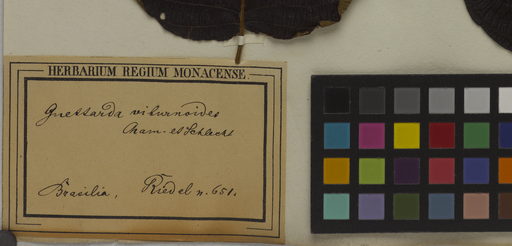 HERBARIUM REGIUM MONACENSE.
Guettarda viburnoides
Cham. et Schlecht
Brasilia, Riedel n. 651.